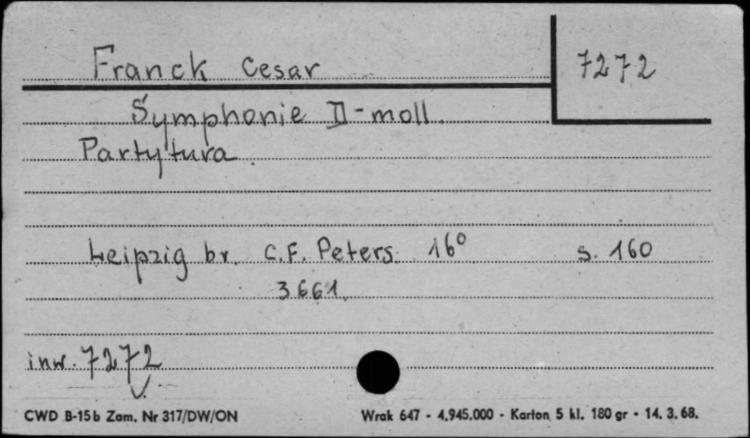 Franck Cesar
7272
Symphonie D-moll.
Partytura.
Leipzig br. C.F. Peters. 16° s. 160
3661.
inw. 7272
CWD B-15b Zam. Nr 317/DW/ON Wrak 647 - 4.945.000 - Karton 5 kl. 180 gr - 14. 3. 68.